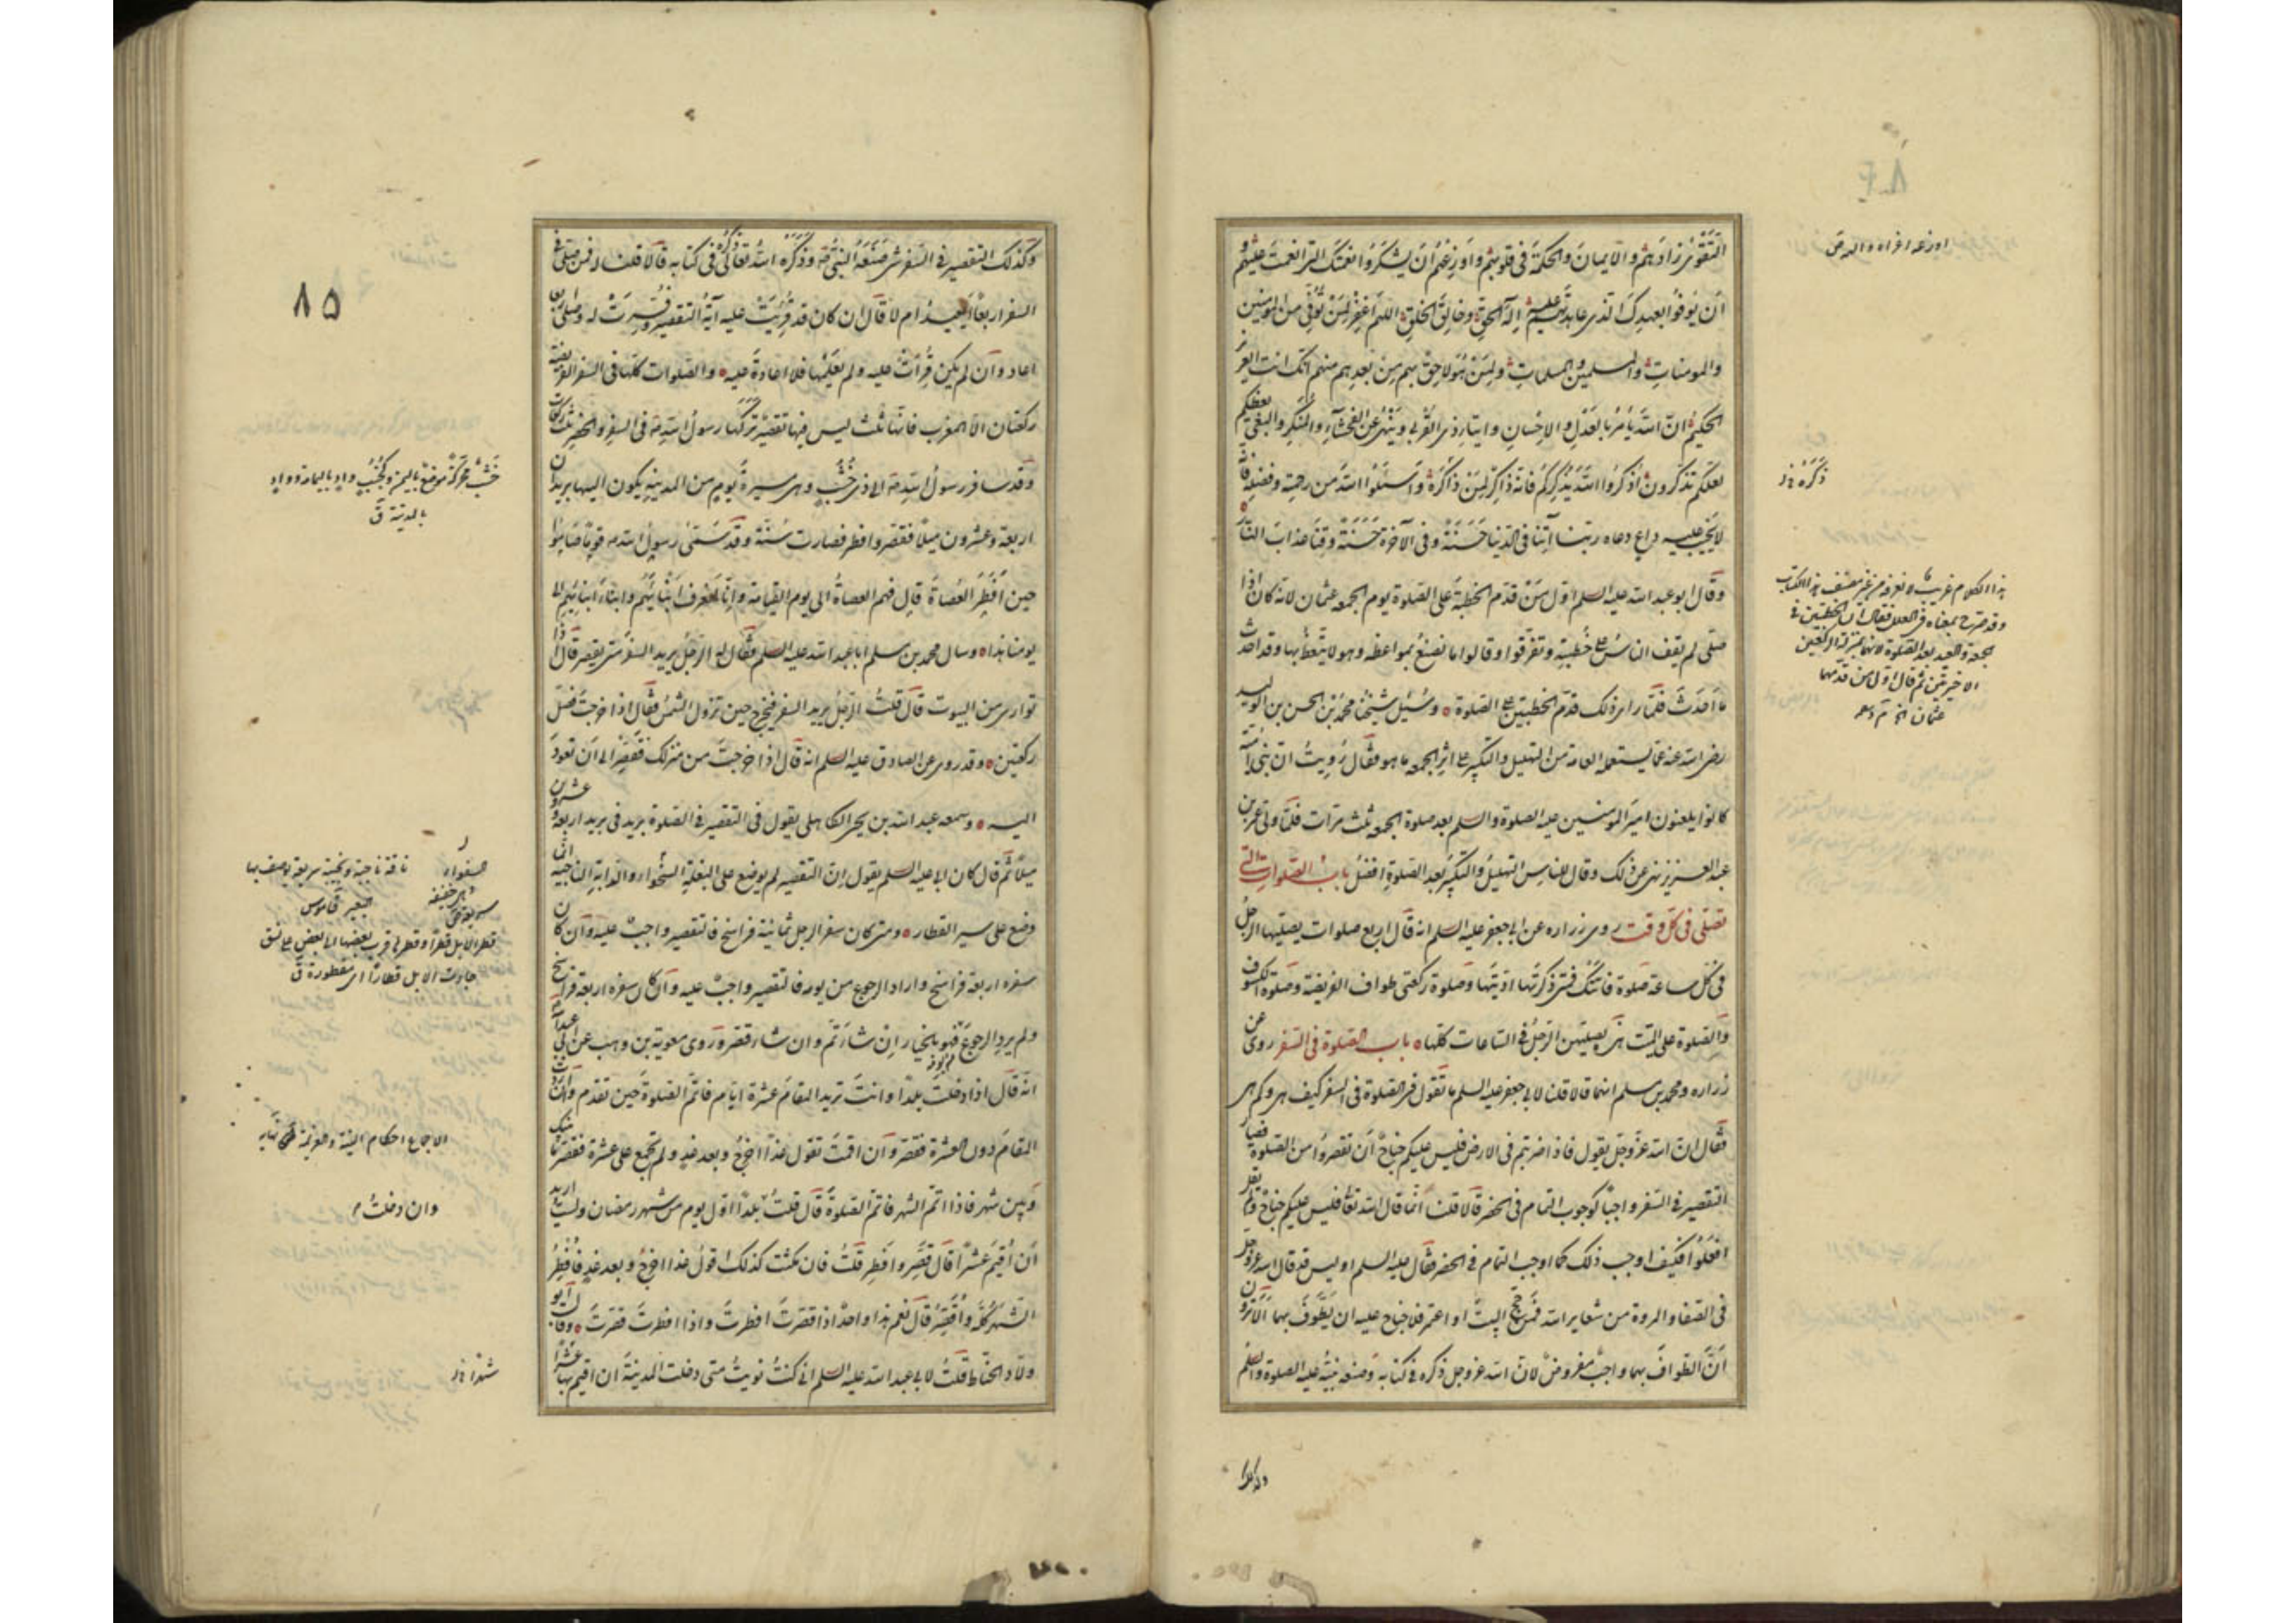 التقوى زادهم والايمان والحكمة فى قلوبهم واوزعهم ان يشكروا نعمتك التى انعمت عليهم و
ان يوفوا بعهدك الذى عاهدتهم عليه اله الحق وخالق الخلق اللهم اغفر لمن توفى من المومنين
والمومنات والمسلمين والمسلمات ولمن هو لاحق بهم من بعدهم منهم انك انت العزيز
الحكيم ان الله يامر بالعدل والاحسان وايتاء ذى القربى وينهى عن الفحشاء والمنكر والبغى يعظكم
لعلكم تذكرون اذكروا الله يذكركم فانه ذاكر لمن ذكره واسئلوا الله من رحمته وفضله فانه
لا يخيب عليه داع دعاه ربنا آتنا فى الدنيا حسنة وفى الآخرة حسنة وقنا عذاب النار
وقال ابو عبد الله عليه السلم اول من قدم الخطبة على الصلوة يوم الجمعه عثمان لانه كان اذا
صلى لم يقف الناس على خطبته وتفرقوا وقالوا ما نصنع بمواعظه وهو لا يتعظ بها وقد احدث
ما احدث فلما راى ذلك قدم الخطبتين على الصلوة وسئل شيخنا محمد بن الحسن بن الوليد
رضى الله عنه عما يستعمله العامة من التهليل والتكبير على اثر الجمعه ما هو فقال رويت ان بنى امية
كانوا يلعنون امير المومنين عليه الصلوة والسلم بعد صلوة الجمعه ثلث مرات فلما ولى عمر بن
عبد العزيز نهى عن ذلك وقال للناس التهليل والتكبير بعد الصلوة افضل باب الصلوات التى
تصلى فى كل وقت روى زراره عن ابى جعفر عليه السلم انه قال اربع صلوات يصليها الرجل
فى كل ساعة صلوة فاتتك فمتى ذكرتها اديتها وصلوة ركعتى طواف الفريضة وصلوة الكسوف
والصلوة على الميت هن يصليهن الرجل فى الساعات كلها باب الصلوة فى السفر روى عن
زراره ومحمد بن مسلم انهما قالا قلنا لابى جعفر عليه السلم ما تقول فى الصلوة فى السفر كيف هى وكم هى
فقال ان الله عز وجل يقول فاذا ضربتم فى الارض فليس عليكم جناح ان تقصروا من الصلوة فصار
التقصير فى السفر واجبا كوجوب التمام فى الحضر قالا قلنا انما قال الله تعالى فليس عليكم جناح ولم يقل
افعلوا فكيف اوجب ذلك كما اوجب التمام فى الحضر فقال عليه السلم او ليس قد قال الله عز وجل
فى الصفا والمروة من شعاير الله فمن حج البيت او اعتمر فلا جناح عليه ان يطوف بهما الا ترون
ان الطواف بهما واجب مفروض لان الله عز وجل ذكره فى كتابه وصنعه نبيه عليه الصلوة والسلم
وكذلك
ذكره
هذا الكلام غريب
وقد صرح بمعناه فى العلل فقال ان الخطبتين فى
الجمعة والعيد بعد الصلوة لانهما بمنزلة الركعتين
الاخيرتين ثم قال اول من قدمهما
عثمان
وكذلك التقصير فى السفر شىء صنعه النبى ص وذكره الله تعالى ذكره فى كتابه قالا قلنا له فمن صلى فى
السفر اربعا ايعيد ام لا قال ان كان قد قرئت عليه آية التقصير وفسرت له وصلى اربعا
اعاد وان لم يكن قرات عليه ولم يعلمها فلا اعادة عليه والصلوات كلها فى السفر الفريضة
ركعتان الا المغرب فانها ثلث ليس فيها تقصير تركها رسول الله ص فى السفر والحضر ثلث ركعات
وقد سافر رسول الله ص الى ذى خشب وهى مسيرة يوم من المدينة يكون اليها بريدان
اربعة وعشرون ميلا فقصر وافطر فصارت سنة وقد سمى رسول الله ص قوما صاموا
حين افطر العصاة قال فهم العصاة الى يوم القيامة وانا لنعرف ابنائهم وابناء ابنائهم الى
يومنا هذا وسال محمد بن مسلم ابا عبد الله عليه السلم فقال له الرجل يريد السفر متى يقصر قال اذا
توارى من البيوت قال قلت الرجل يريد السفر فيخرج حين تزول الشمس فقال اذا خرجت فصل
ركعتين وقد روى عن الصادق عليه السلم انه قال اذا خرجت من منزلك فقصر الى ان تعود
اليه وسمعه عبد الله بن يحيى الكاهلى يقول فى التقصير فى الصلوة بريد فى بريد اربعة وعشرون
ميلا ثم قال كان ابى عليه السلم يقول ان التقصير لم يوضع على البغلة السفواء والدابة الناجية انما
وضع على سير القطار ومتى كان سفر الرجل ثمانية فراسخ فالتقصير واجب عليه وان كان
سفره اربعة فراسخ واراد الرجوع من يومه فالتقصير واجب عليه وان كان سفره اربعة فراسخ
ولم يرد الرجوع من يومه فهو بالخيار ان شاء تم وان شاء قصر وروى معوية بن وهب عن ابى عبد الله
انه قال اذا دخلت بلدا وانت تريد المقام عشرة ايام فاتم الصلوة حين تقدم وان اردت
المقام دون العشرة فقصر وان اقمت تقول غدا اخرج وبعد غد ولم تجمع على عشرة فقصر ما بينك
وبين شهر فاذا اتم الشهر فاتم الصلوة قال قلت بلدا اول يوم من شهر رمضان ولست اريد
ان اقيم عشرا قال قصر وافطر قلت فان مكثت كذلك اقول غدا اخرج وبعد غد فافطر
الشهر كله واقصر قال نعم هذا واحد اذا قصرت افطرت واذا افطرت قصرت وقال ابو
ولاد الحناط قلت لابى عبد الله عليه السلم انى كنت نويت متى دخلت المدينة ان اقيم بها عشرا
٨٥
خشب محركة موضع باليمن وكجنب واد باليمامة وواد
بالمدينة ق
ناقة ناجية ونجية سريعة لا يوصف بها
البعير قاموس
قطر الابل قطرا وقطرها قرب بعضها الى بعض على نسق
جاءت الابل قطارا اى مقطورة ق
الاجماع احكام النية والعزيمة نهاية
وان دخلت